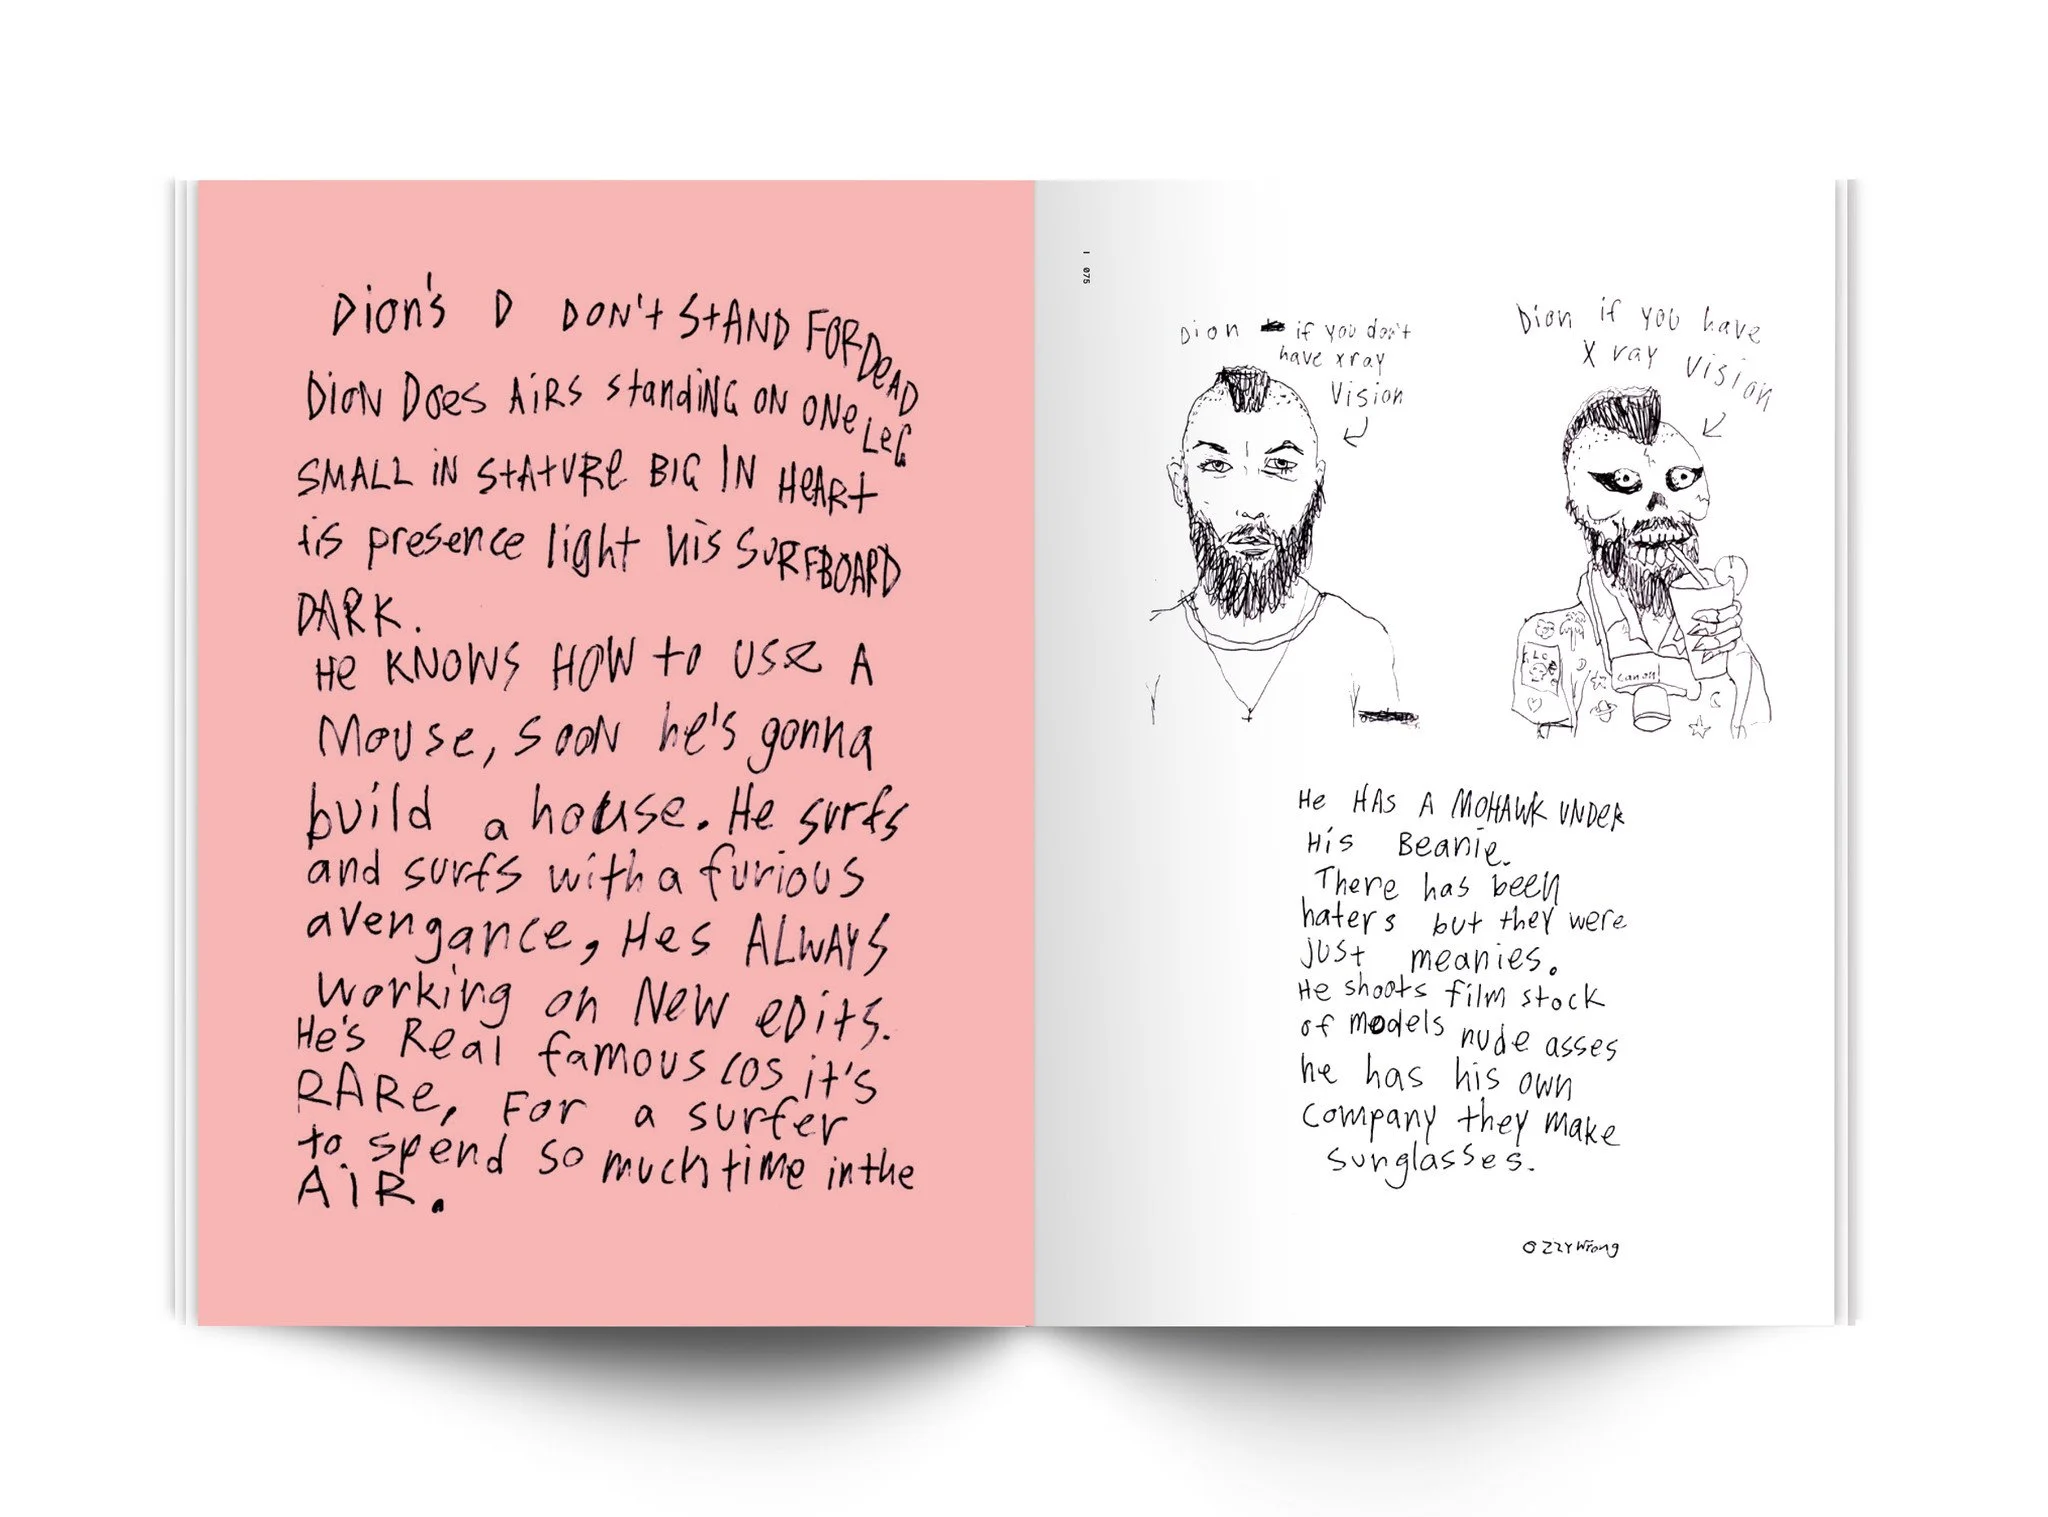 Dion's D DON't StAND FOR DeAD
DioN Does AiRS standiNG ON ONe LeG
SMALL iN StAtURe BIG IN HeARt
tis presence light his SURFBOARD
DARK.
He KNOWS HOW to USe A
Mouse, sooN he's gonna
build a house. He surfs
and surfs with a furious
avengance, Hes ALWAYS
working on New eDits.
He's Real famous cos it's
RARe, For a surfer
to spend so much time in the
AiR.
I 075
Dion if you don't
have x ray
Vision
Dion if you have
X ray Vision
LC
canon
He HAS A MOHAWK UNDER
His Beanie.
There has been
haters but they were
just meanies.
He shoots film stock
of models nude asses
he has his own
company they make
sunglasses.
OZZY Wrong